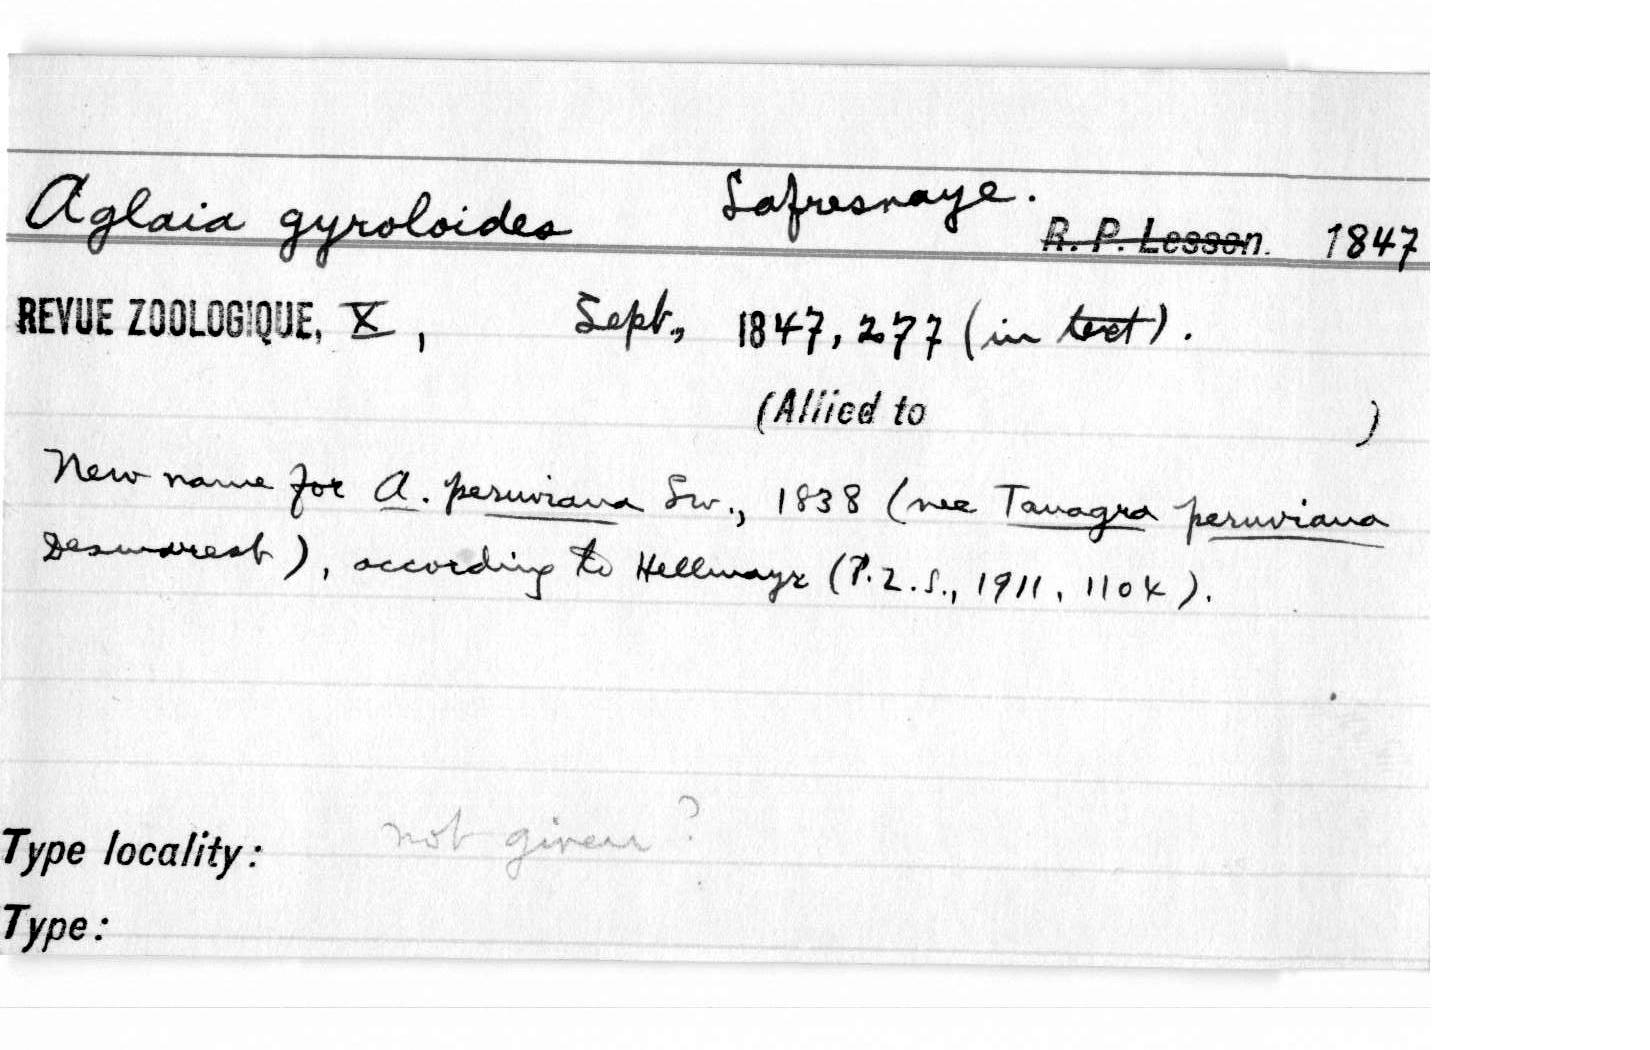 Aglaia gyroloides Lafresnaye. R. P. Lesson. 1847
REVUE ZOOLOGIQUE, X, Sept., 1847, 277 (in text).
(Allied to )
New name for A. peruviana Sw., 1838 (nec Tanagra peruviana
Desmarest), according to Hellmayr (P.Z.S., 1911, 1104).
Type locality: not given?
Type: